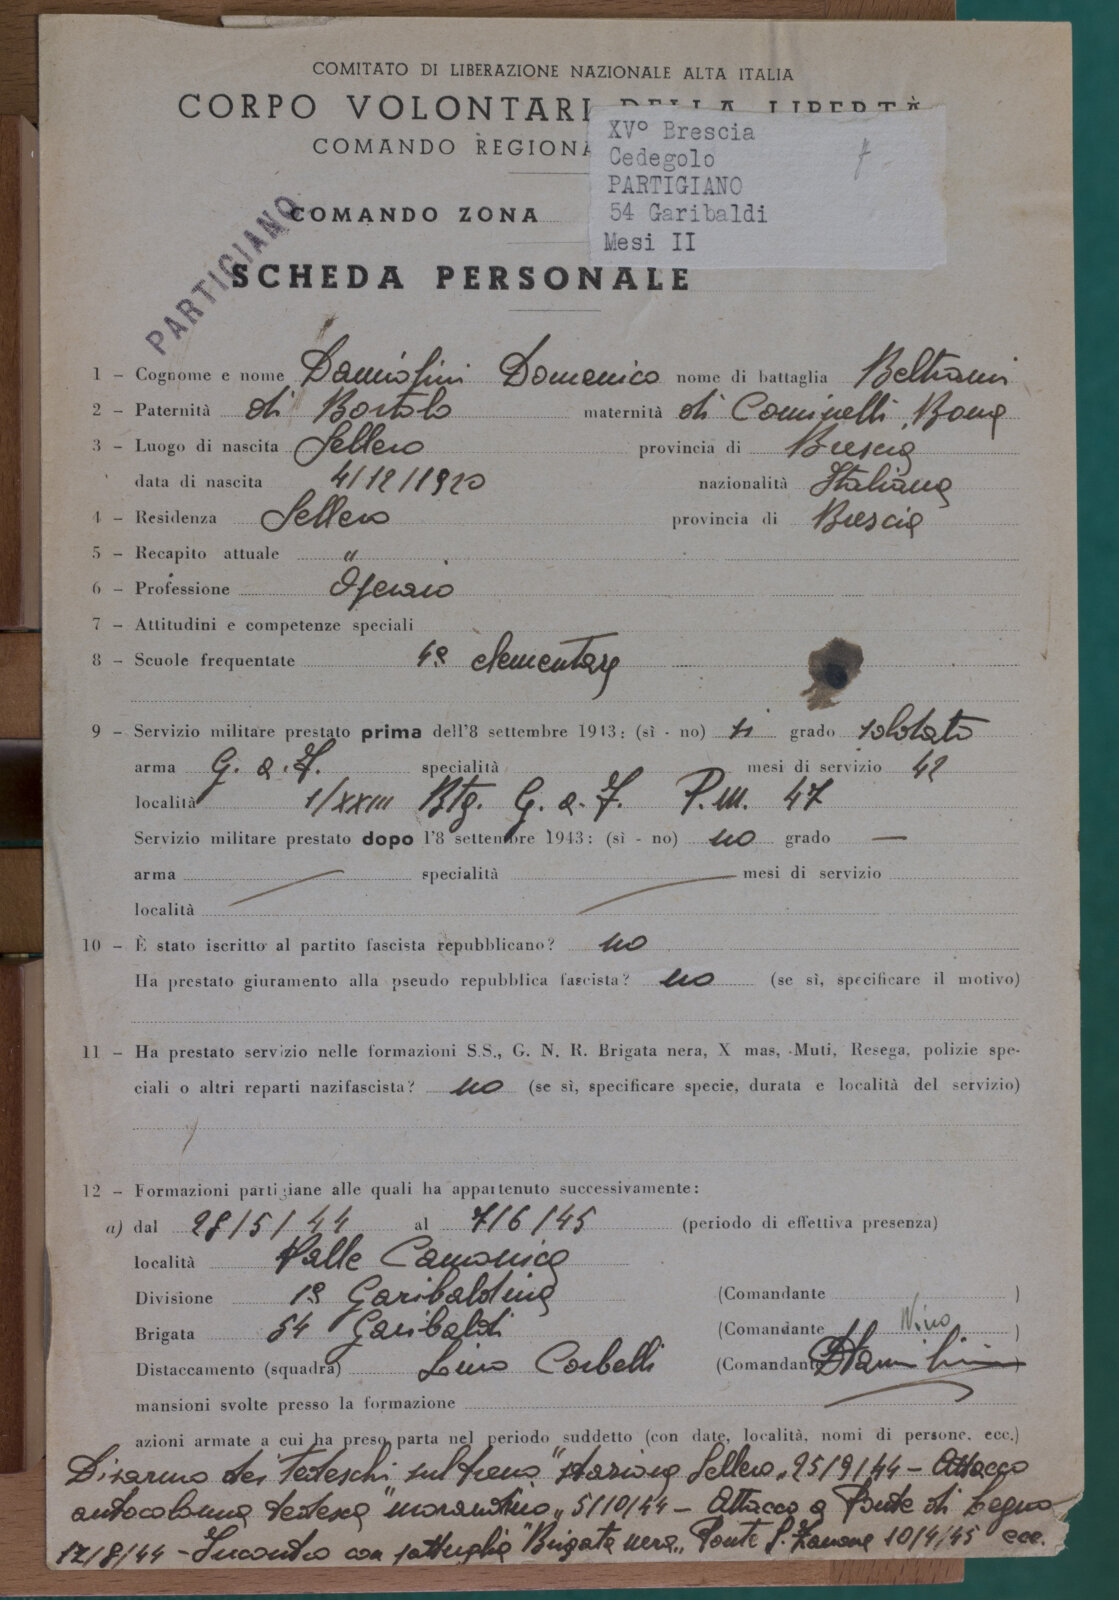 COMITATO DI LIBERAZIONE NAZIONALE ALTA ITALIA
CORPO VOLONTARI DELLA LIBERTÀ
COMANDO REGIONA
XV° Brescia
Cedegolo
PARTIGIANO
54 Garibaldi
Mesi II
COMANDO ZONA
PARTIGIANO
SCHEDA PERSONALE
1 - Cognome e nome Damiolini Domenico nome di battaglia Beltrami
2 - Paternità di Bortolo maternità di Cominelli Bona
3 - Luogo di nascita Sellero provincia di Brescia
data di nascita 4/12/1920 nazionalità Italiana
4 - Residenza Sellero provincia di Brescia
5 - Recapito attuale "
6 - Professione Operaio
7 - Attitudini e competenze speciali
8 - Scuole frequentate 4a elementare
9 - Servizio militare prestato prima dell'8 settembre 1943: (sì - no) si grado soldato
arma G. a. F. specialità mesi di servizio 42
località 1/XXIII Btg. G. a. F. P. M. 47
Servizio militare prestato dopo l'8 settembre 1943: (sì - no) no grado —
arma specialità mesi di servizio
località
10 - È stato iscritto al partito fascista repubblicano? no
Ha prestato giuramento alla pseudo repubblica fascista? no (se sì, specificare il motivo)
11 - Ha prestato servizio nelle formazioni S.S., G. N. R. Brigata nera, X mas, Muti, Resega, polizie spe-
ciali o altri reparti nazifascista? no (se sì, specificare specie, durata e località del servizio)
12 - Formazioni partigiane alle quali ha appartenuto successivamente:
a) dal 28/5/44 al 7/6/45 (periodo di effettiva presenza)
località Valle Camonica
Divisione 1a Garibaldina (Comandante )
Brigata 54 Garibaldi (Comandante Nino )
Distaccamento (squadra) Lino Corbelli (Comandante Damiolini )
mansioni svolte presso la formazione
azioni armate a cui ha preso parta nel periodo suddetto (con date, località, nomi di persone, ecc.)
Disarmo dei Tedeschi sul treno "stazione Sellero" 25/9/44 - Attacco
autocolonna tedesca "morandino" 5/10/44 - Attacco a Ponte di Legno
17/8/44 - Incontro con pattuglia "Brigata nera" Ponte S. Zanone 10/4/45 ecc.